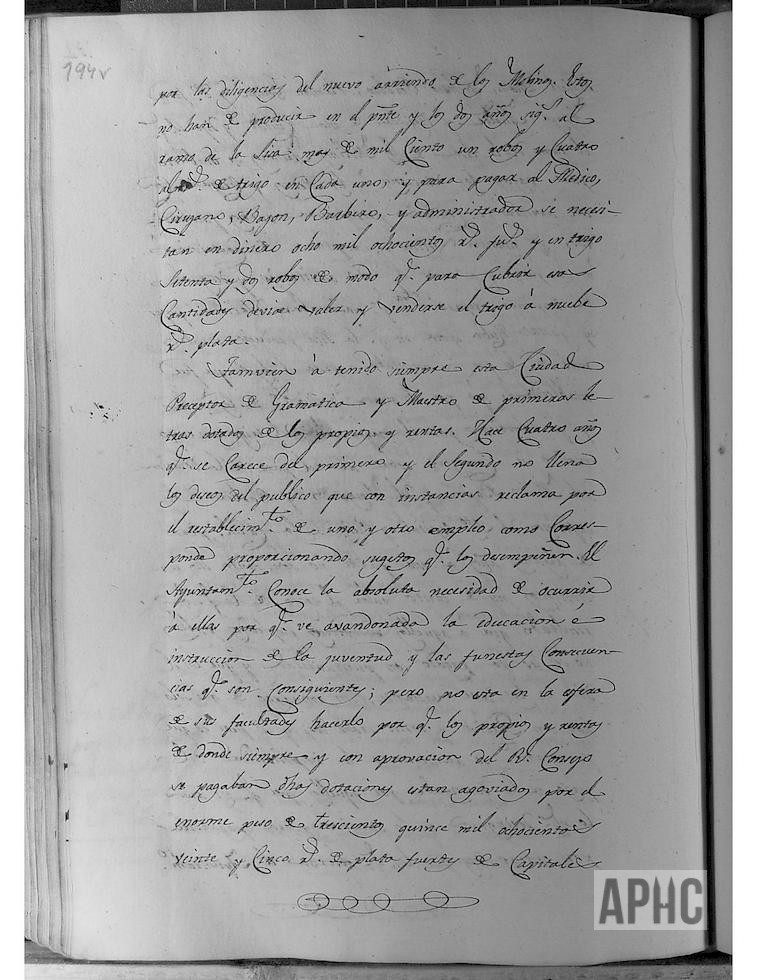 194v
por las diligencias del nuevo arriendo de los Molinos. Estos
no han de producir en el pnte y los dos años sigs. al
ramo de la Lica mas de mil Ciento un robos y Cuatro
alms. de trigo en Cada uno, y para pagar al Medico,
Cirujano, Bajon, Barbero, y administrador se necesi-
tan en dinero ocho mil ochocientos rs. fs. y en trigo
Setenta y dos robos de modo qe. para Cubrir esas
Cantidades deviae valer y venderse el trigo á nuebe
rs. plata.
Tamvien á tenido siempre esta Ciudad
Preceptor de Gramatica y Maestro de primeras le-
tras dotados de los propios y rentas. Hace Cuatro años
qe. se Carece del primero y el Segundo no llena
los deseos del publico que con instancias reclama por
el restablecimto. de uno y otro empleo como Corres-
ponde proporcionando sugetos qe. los desempeñen. El
Ayuntamto. Conoce la absoluta necesidad de ocurrir
á ellas por qe. ve avandonada la educacion é
instruccion de la juventud y las funestas Consecuen-
cias qe. son Consiguientes; pero no esta en la esfera
de sus facultades hacerlo por qe. los propios y rentas
de donde siempre y con aprovacion del Rl. Consejo
se pagaban dhas dotaciones estan agoviados por el
enorme peso de trescientos quince mil ochocientos
veinte y Cinco rs. de plata fuertes de Capitales
APHC